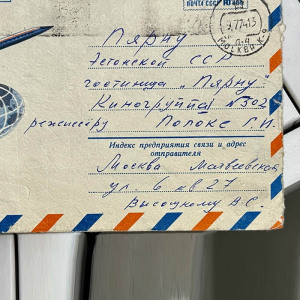 ПОЧТА СССР
9.77-13
МОСКВА
Пярну
Эстонской ССР
гостиница „Пярну"
Киногруппа №302
режиссёру Полоке Г.И.
Индекс предприятия связи и адрес
отправителя
Москва Матвеевская
ул. 6 кв 27
Высоцкому В.С.